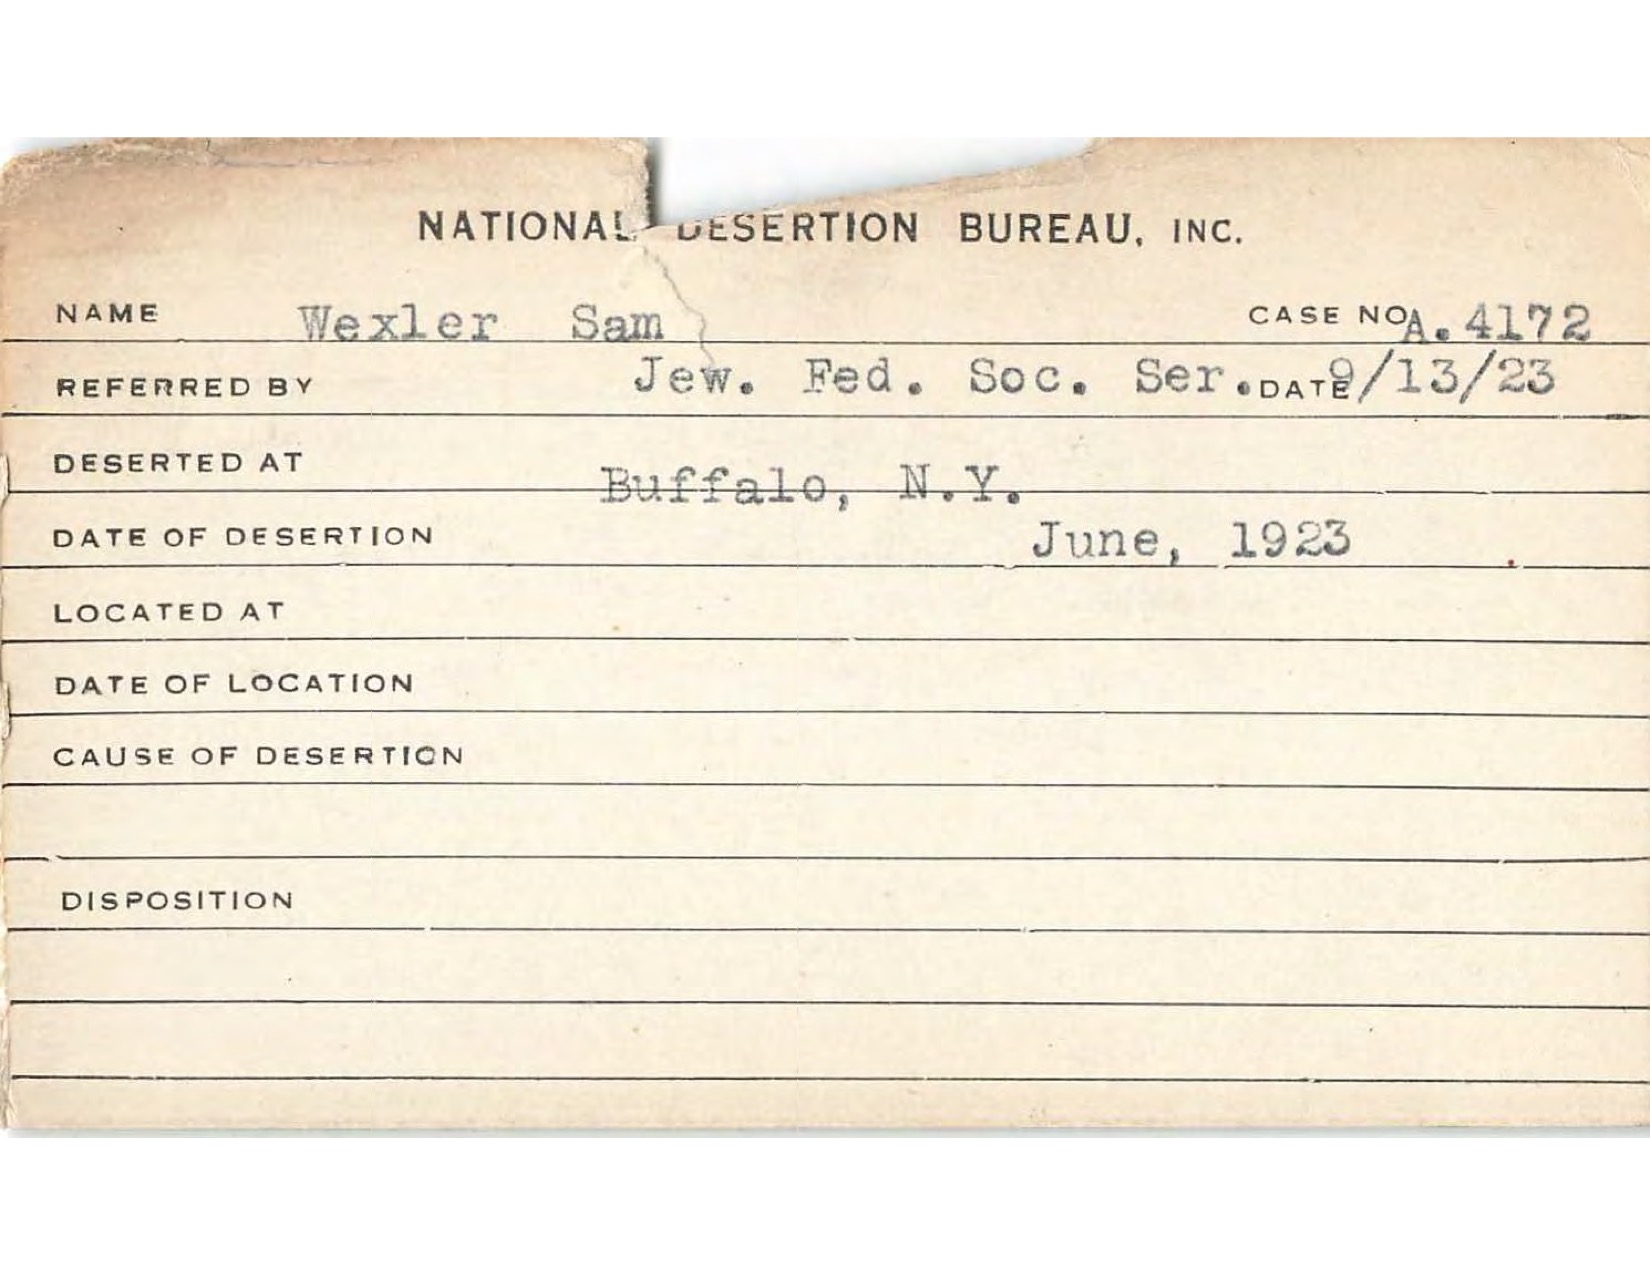 NATIONAL DESERTION BUREAU, INC.
NAME Wexler Sam CASE NO. A. 4172
REFERRED BY Jew. Fed. Soc. Ser. DATE 9/13/23
DESERTED AT Buffalo, N.Y.
DATE OF DESERTION June, 1923
LOCATED AT
DATE OF LOCATION
CAUSE OF DESERTION
DISPOSITION